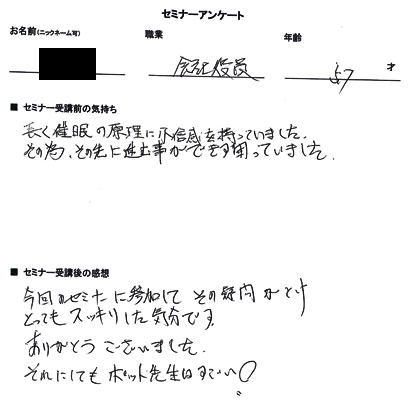 セミナーアンケート
お名前(ニックネーム可) 職業 年齢
会社役員 57 才
■ セミナー受講前の気持ち
長く催眠の原理に不信感を持っていました.
その為、その先に進む事ができず困っていました.
■ セミナー受講後の感想
今回のセミナーに参加して その疑問がとけ
とってもスッキリした気分です.
ありがとうございました.
それにしても ホット先生はすごい○